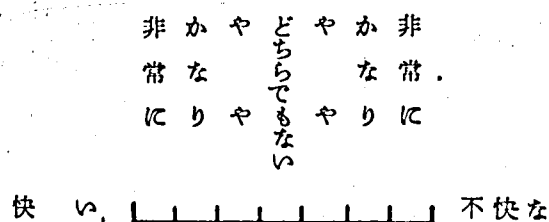 非常に
かなり
やや
どちらでもない
やや
かなり
非常に
快い
不快な